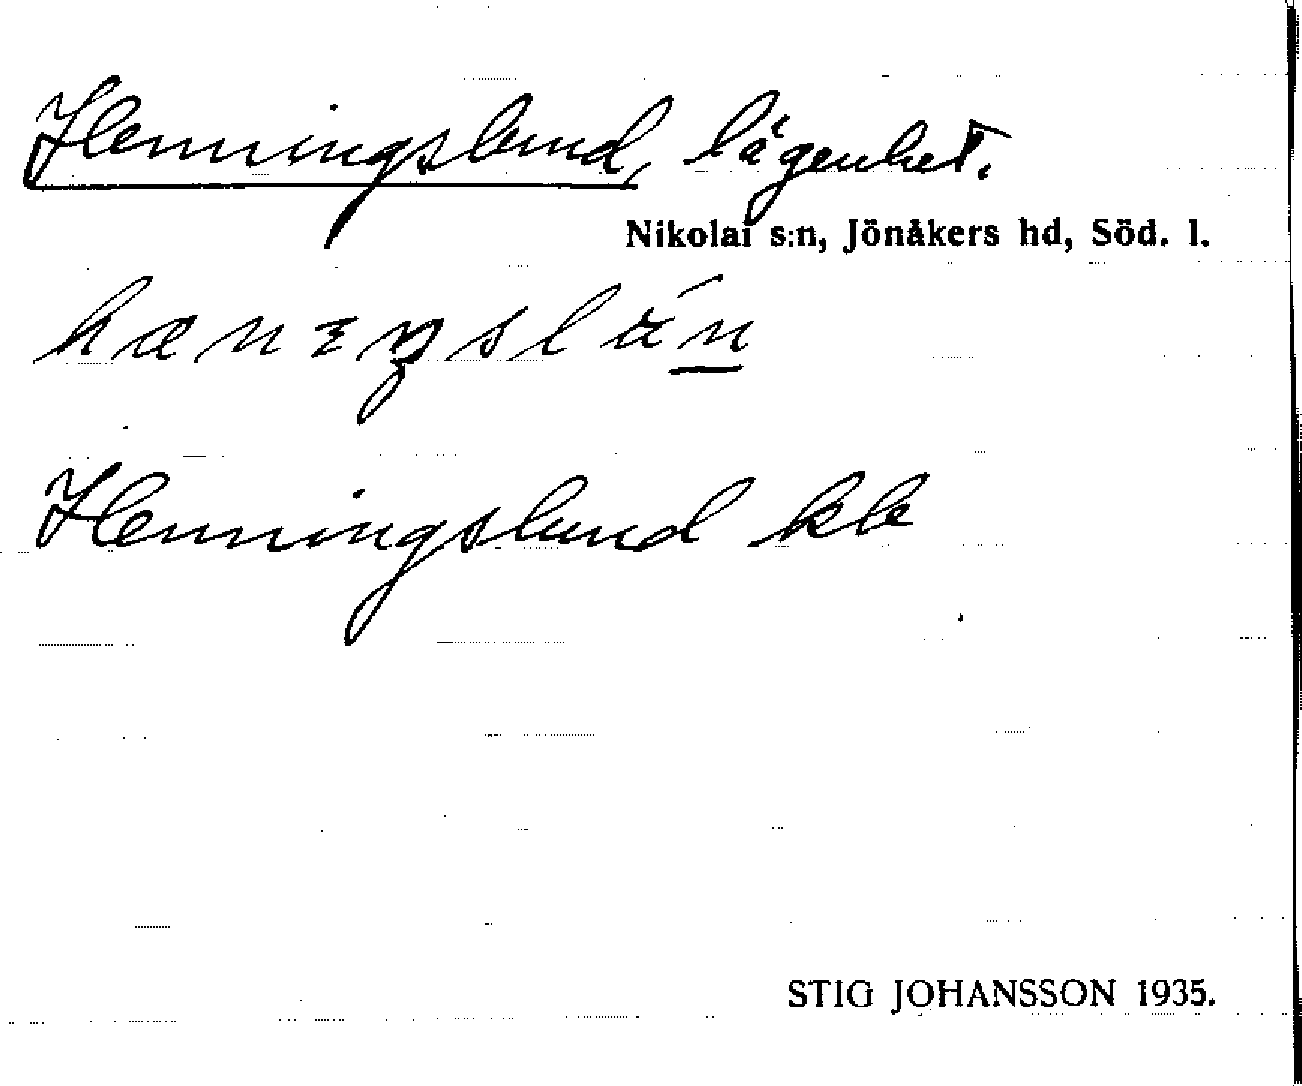 Henningslund, lägenhet.
Nikolai s:n, Jönåkers hd, Söd. l.
Henningslund kb
STIG JOHANSSON 1935.